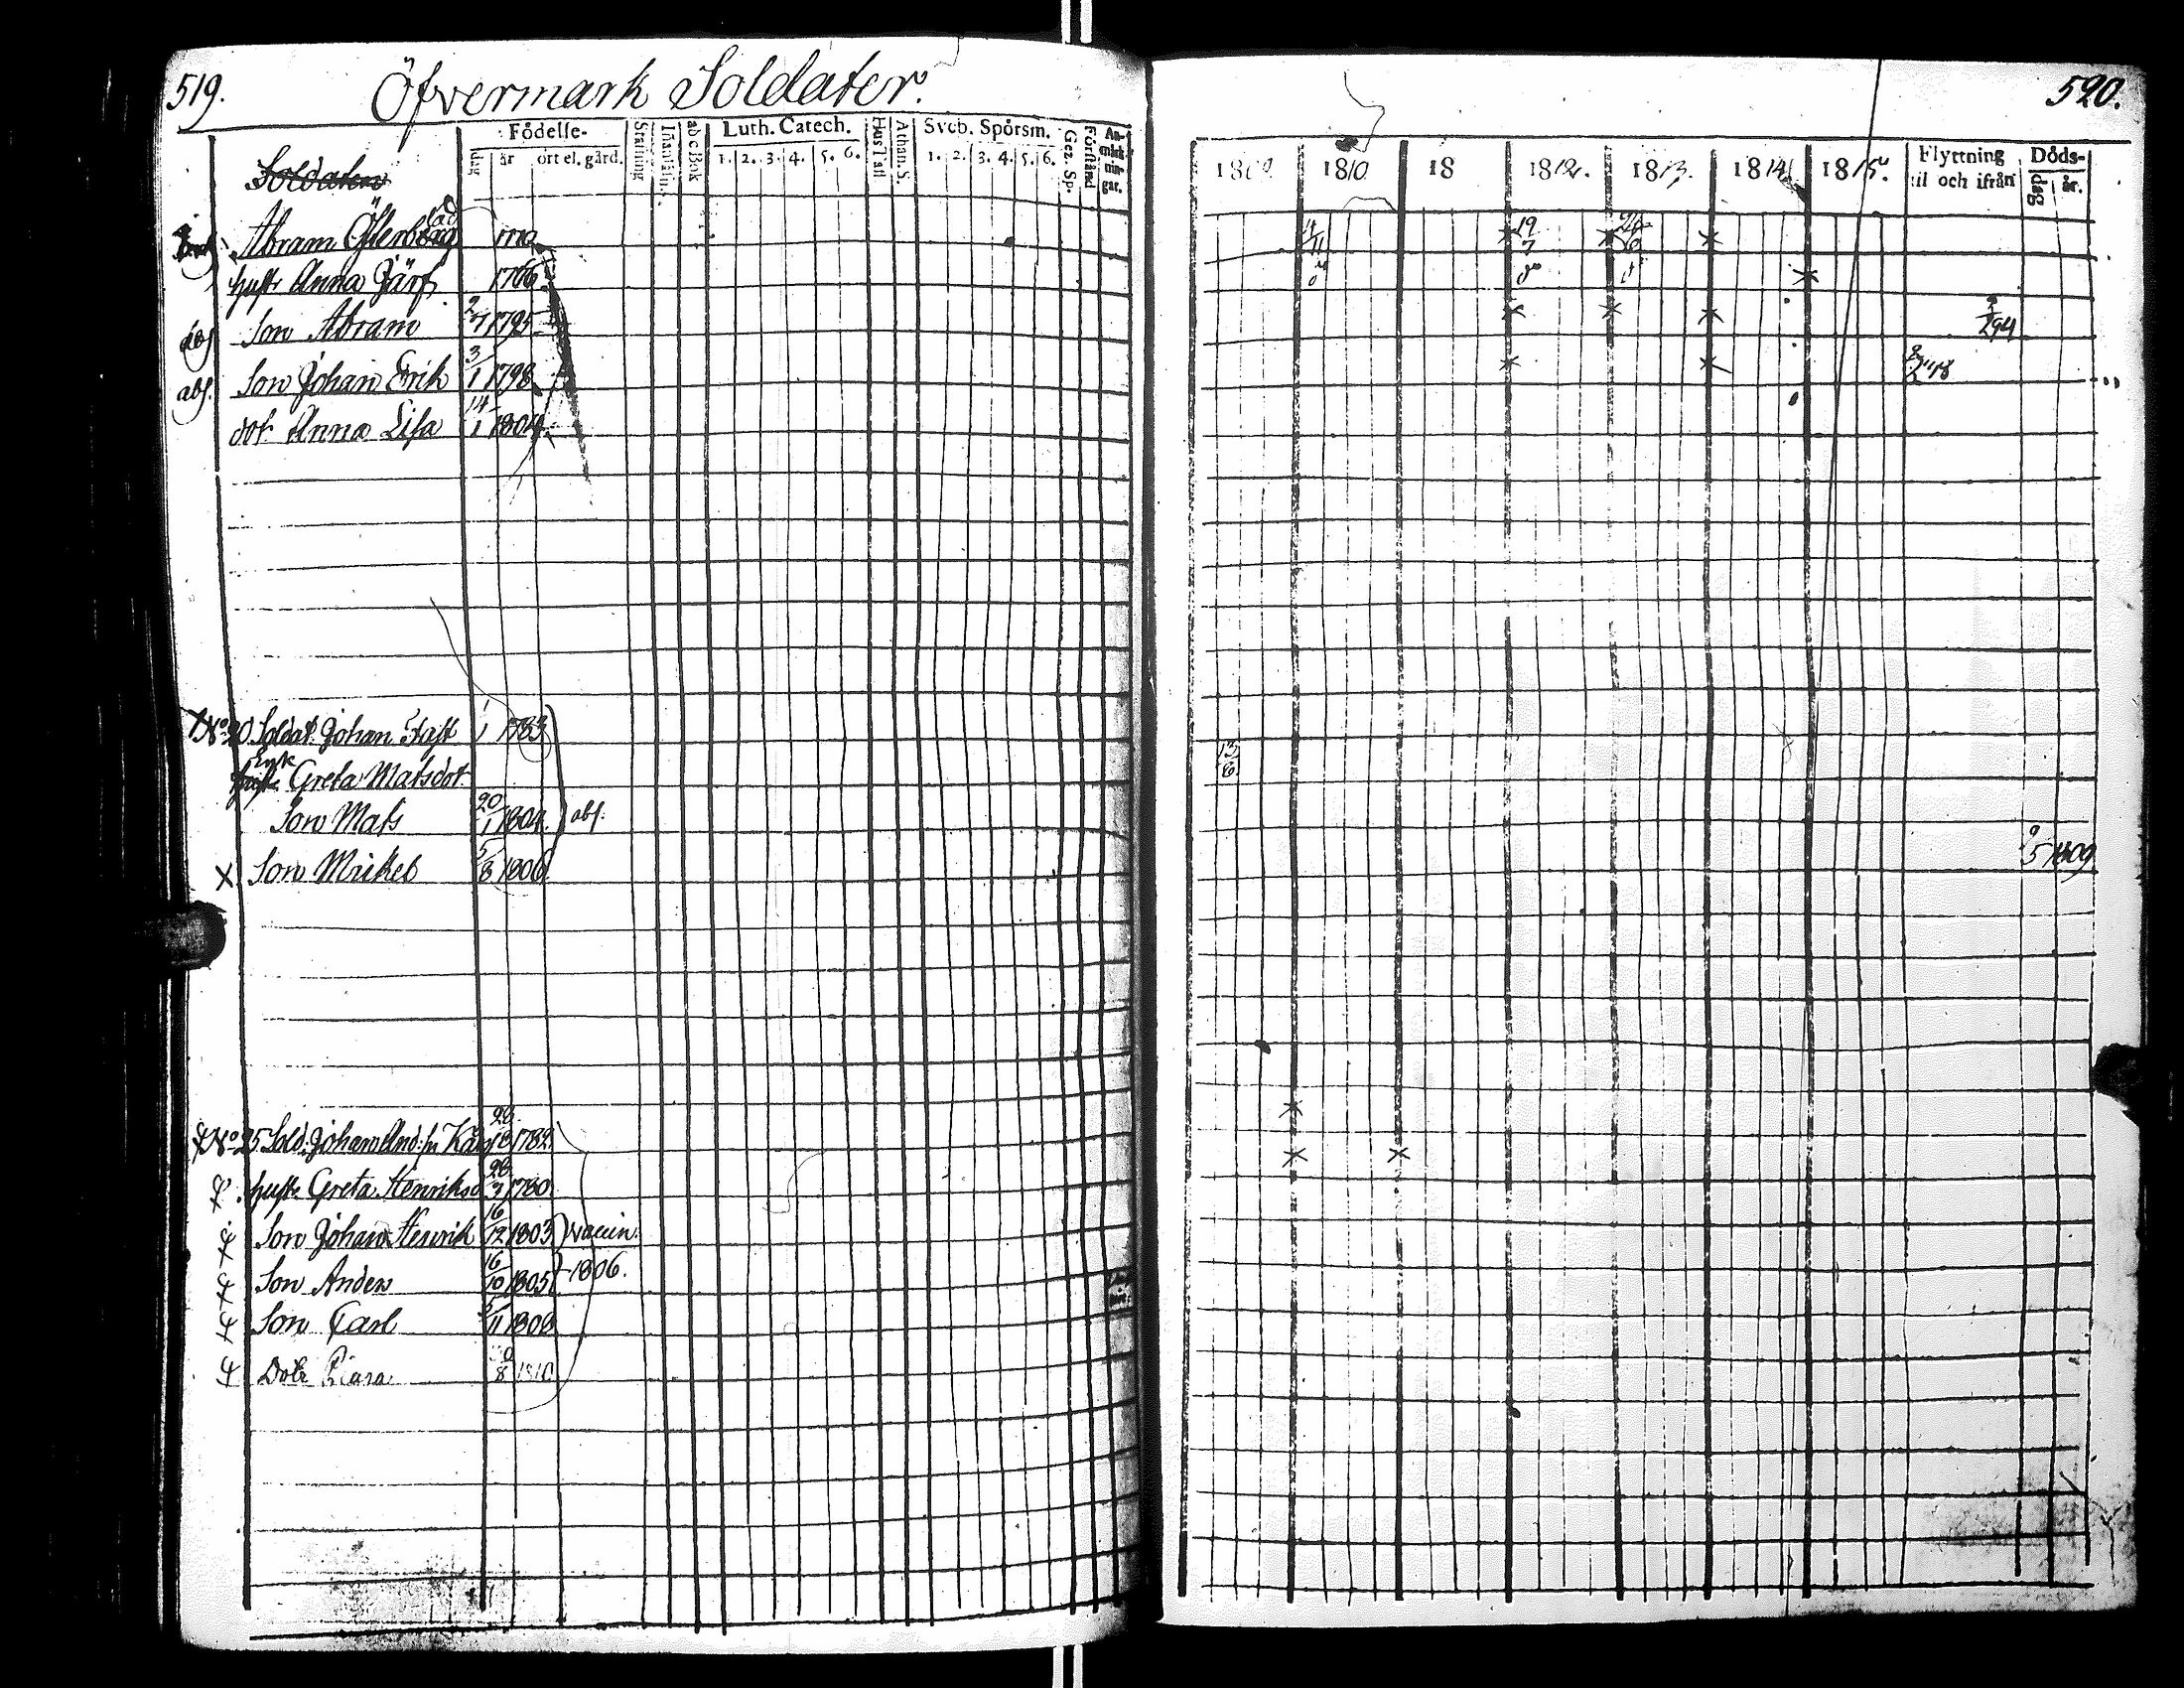 519.
Öfvermark Soldater.
Födelse-
dag
år
ort el. gård.
Luth. Catech.
1. 2. 3. 4. 5. 6.
ab c Bok
Hus Tafl
Athan. S.
Sveb. Spörsm.
1. 2. 3. 4. 5. 6.
Gez. Sp.
Förstånd
An-
märk-
nin-
gar.
Soldaten
Abram Österb
hustr Anna Järf 1766
abs. Son Abram 2/7 1795
abs. Son Johan Erik 3/1 1798
dot Anna Lisa 14/1 1804
No 20 Soldat Johan Stast 1783
Enk
hustr Greta Matsdot
Son Mats 20/1 1804. abs.
x Son Mickel 5/8 1806
No 25 Sold. Johan And:s 1782.
hustr Greta Henriksd 1780
Son Johan Henrik 16/12 1803 vaccin.
Son Anders 16/10 1805 1806.
Son Carl 5/11 1808
Dotr 8 1810
520.
1809
1810
18
1812.
1813.
1814
1815.
Flyttning
til och ifrån
Döds-
dag
år.
4/11
19/7
2/294
13/6
9/5 1809